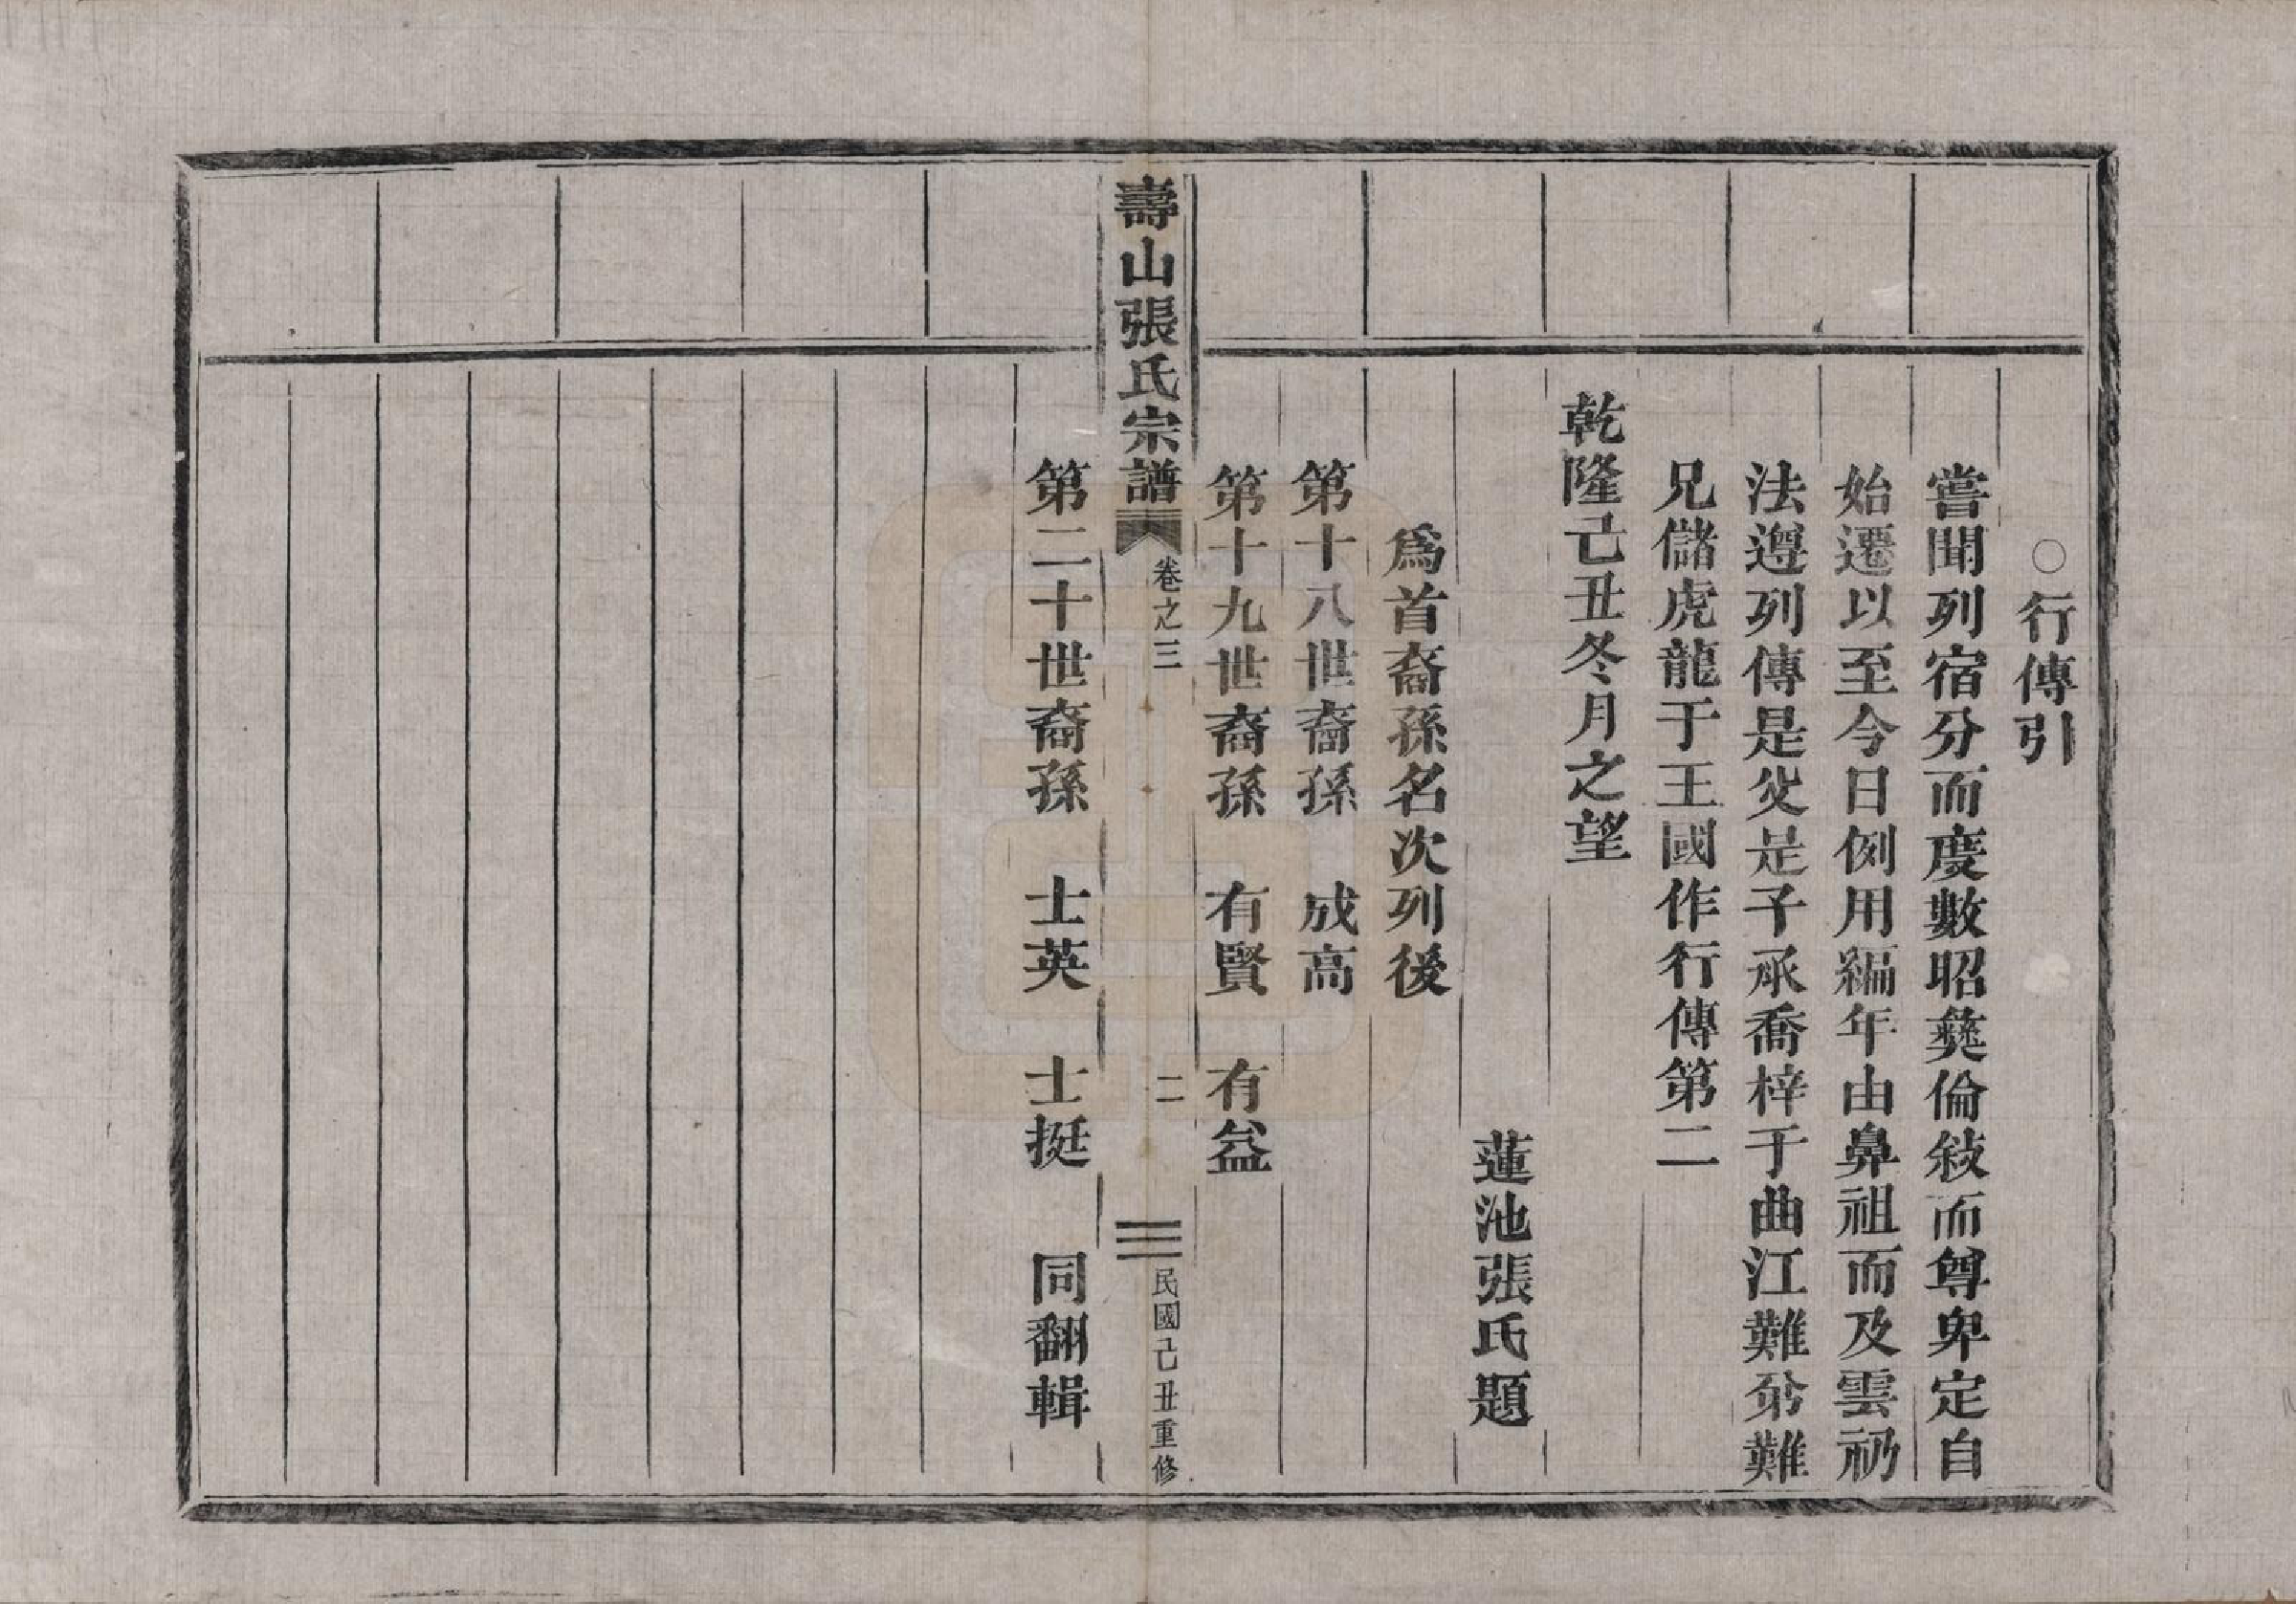 ○行傳引
嘗聞列宿分而度數昭彝倫敍而尊卑定自
始遷以至今日例用編年由鼻祖而及雲礽
法遵列傳是父是子承喬梓于曲江難弟難
兄儲虎龍于王國作行傳第二
乾隆己丑冬月之望
蓮池張氏題
爲首裔孫名次列後
第十八世裔孫 成高
第十九世裔孫 有賢 有益
壽山張氏宗譜 卷之三 二 民國己丑重修
第二十世裔孫 士英 士挺 同翻輯